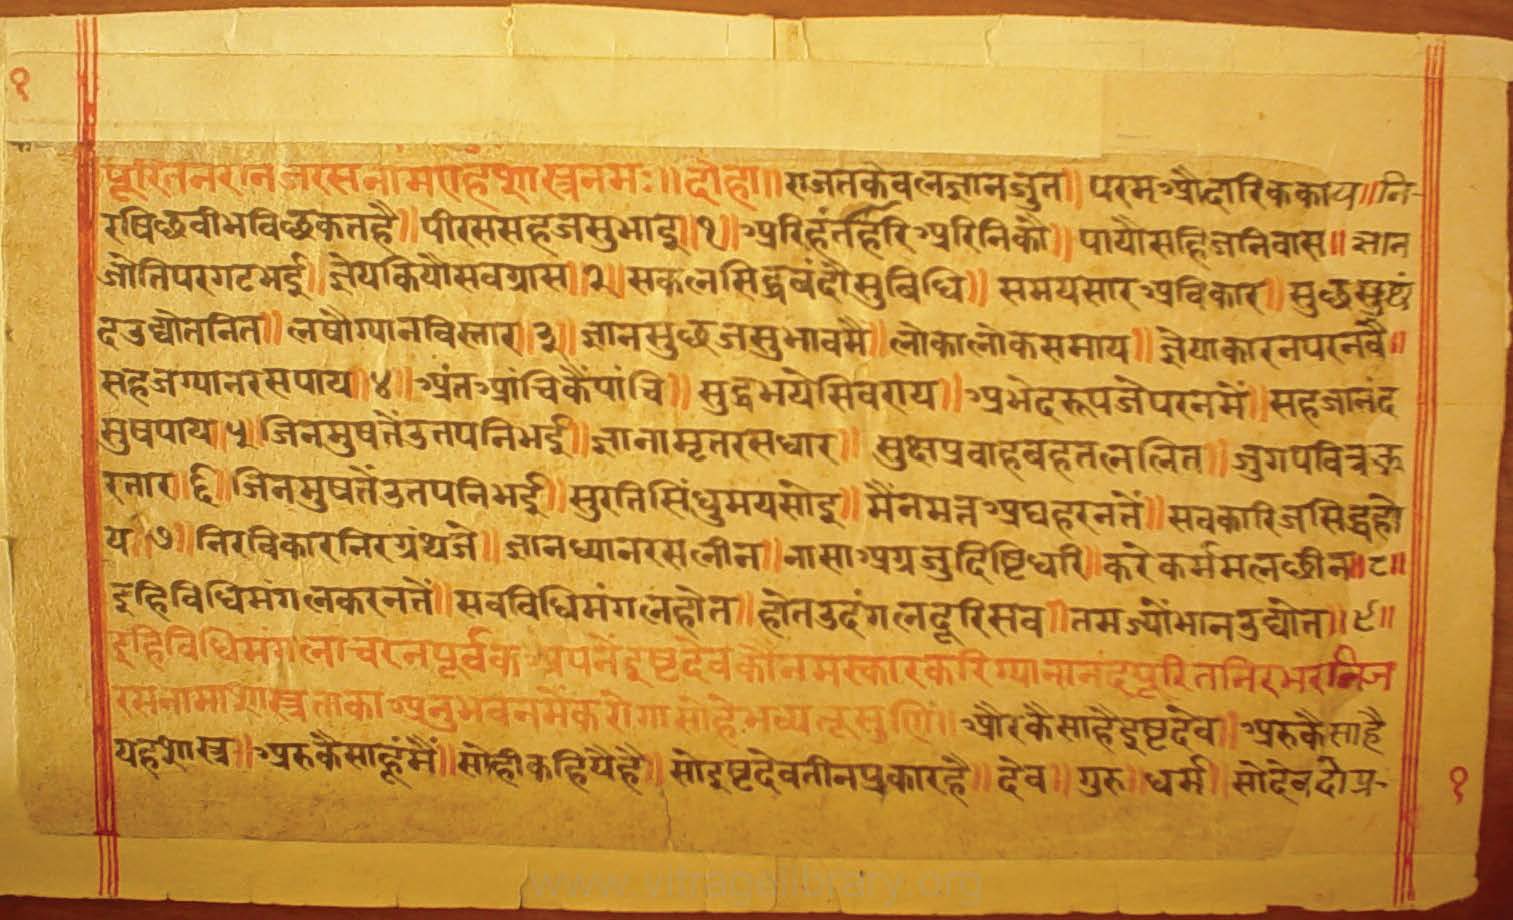 १
पूरितनरानिजरसनामग्रंहशास्त्रनमः॥ दोहा॥ राजतकेवलज्ञानजुत॥ परमऔदारिककाय॥नि-
रषिछवीभविछकतहै॥ पीरससहजसुभाइ॥१॥ अरिहंतहरिअरिनिकौ॥ पायौसहिजनिवास॥ ज्ञान
जोतिपरगटभई॥ ज्ञेयकियौसवग्रास॥२॥ सकलसिद्धवंदौसुविधि॥ समयसारअविकार॥ सुछसुछं
दउद्योतनित॥ लषौग्यानविस्तार॥३॥ ज्ञानसुछजसुभावमै॥ लोकालोकसमाय॥ ज्ञेयाकारनपरनवै॥
सहजग्यानरसपाय॥४॥ अंतआंचिकैपांचि॥ सुद्धभयेसिवराय॥ अभेदरूपजेपरनमें॥ सहजानंद
सुषपाय॥५॥ जिनमुषतैंउतपनिभई॥ ज्ञानामृतरसधार॥ सुक्षप्रवाहबहतललित॥ जुगपवित्रक
रतार॥६॥ जिनमुषतैंउतपनिभई॥ सुरतिसिंधुमयसोइ॥ मैंनमतअघहरनतें॥ सवकारिजसिद्धहो
य॥७॥ निरविकारनिरग्रंथजे॥ ज्ञानध्यानरसलीन॥ नासाअग्रजुदिष्टिधरि॥ करेकर्ममलछीन॥८॥
इहिविधिमंगलकरनतैं॥ सवविधिमंगलहोत॥ होतउदंगलदूरिसव॥ तमज्योंभानउद्योत॥९॥
इहिविधिमंगलाचरनपूर्वकअपनेंइष्टदेवकौनमस्कारकरिग्यानानंदपूरितनिरभरनिज
रसनामाशास्त्रताकाअनुभवनमेंकरोंगासोहेभव्यतूसुणि॥ औरकैसाहैइष्टदेव॥ अरुकैसाहै
यहशास्त्र॥ अरुकैसाहूंमैं॥ सोहीकहियैहै॥ सोइष्टदेवतीनप्रकारहै॥ देव॥ गुरु॥ धर्म॥ सोदेवदोप्र-
१
www.vitragelibrary.org